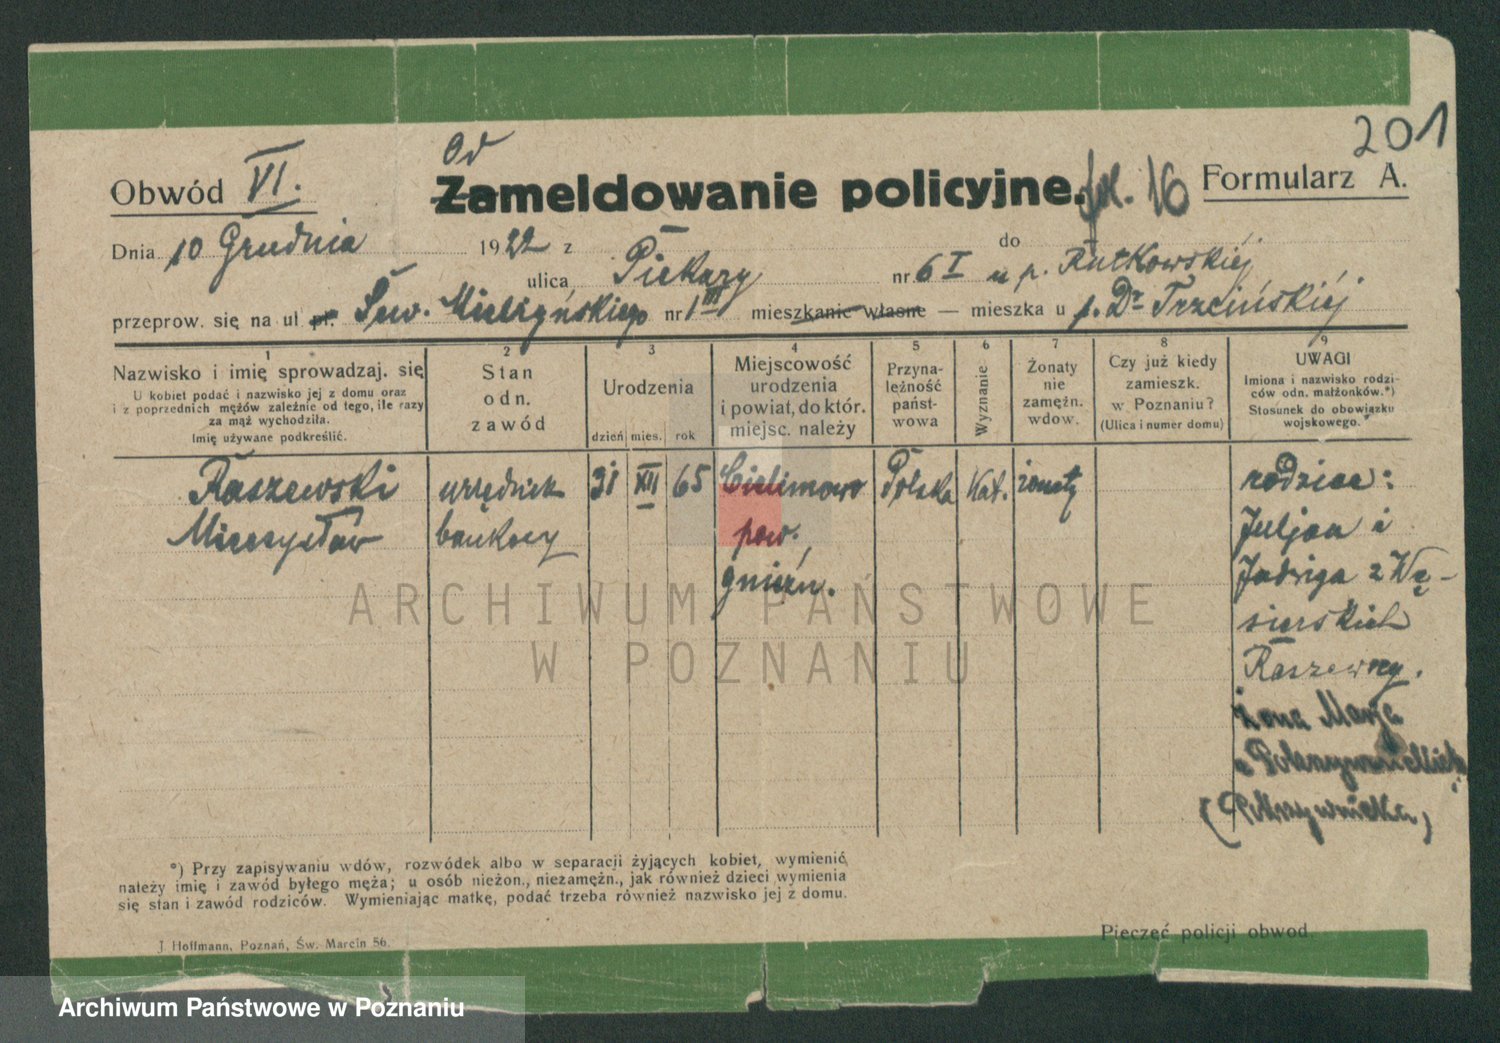 201
Od
Obwód VI. Zameldowanie policyjne. fol. 16 Formularz A.
Dnia 10 Grudnia 1922 z Piekary do
ulica nr 6 I u p. Rutkowskiéj
przeprow. się na ul pl. Sew. Mielżyńskiego nr 1 III mieszkanie własne — mieszka u p. Dr Trzcińskiéj
1
Nazwisko i imię sprowadzaj. się
U kobiet podać i nazwisko jej z domu oraz
i z poprzednich mężów zależnie od tego, ile razy
za mąż wychodziła.
Imię używane podkreślić.
2
Stan
odn.
zawód
3
Urodzenia
dzień mies. rok
4
Miejscowość
urodzenia
i powiat, do któr.
miejsc. należy
5
Przyna-
leżność
państ-
wowa
6
Wyznanie
7
Żonaty
nie
zamężn.
wdow.
8
Czy już kiedy
zamieszk.
w Poznaniu?
(Ulica i numer domu)
9
UWAGI
Imiona i nazwisko rodzi-
ców odn. małżonków.*)
Stosunek do obowiązku
wojskowego.
Raszewski
Mieczysław
urzędnik
bankowy
31 XII 65
Cielimowo
pow.
gnieźn.
Polska
Kat.
żonaty
rodzice:
Juljan i
Jadwiga z Wę-
sierskich
Raszewscy.
Żona Marja
(Pokrzywnicka)
ARCHIWUM PAŃSTWOWE
W POZNANIU
*) Przy zapisywaniu wdów, rozwódek albo w separacji żyjących kobiet, wymienić
należy imię i zawód byłego męża; u osób nieżon., niezamężn., jak również dzieci wymienia
się stan i zawód rodziców. Wymieniając matkę, podać trzeba również nazwisko jej z domu.
J. Hoffmann, Poznań, Św. Marcin 56.
Pieczęć policji obwod.
Archiwum Państwowe w Poznaniu